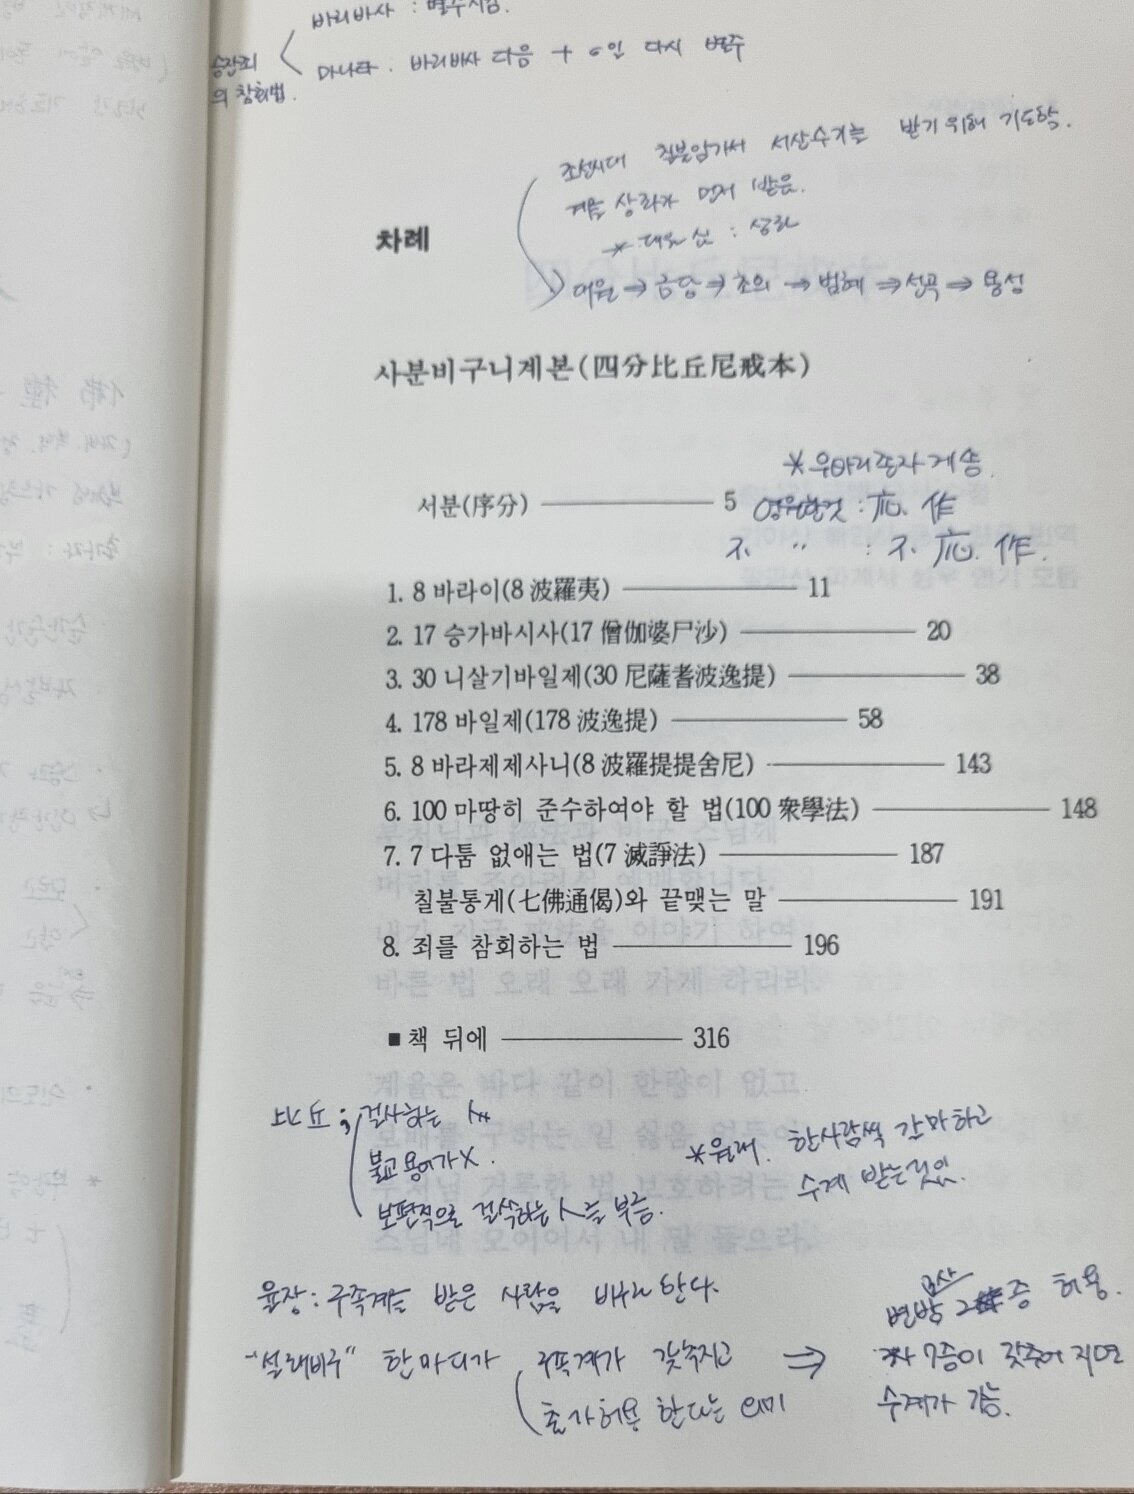 바리바사 : 별주시킴.
승잔죄
마나타 : 바리바사 다음 + 6인 다시 별주
의 참회법.
조선시대 칠불암에서 서상수계를 받기 위해 기도함.
계를 상좌가 먼저 받음.
* 대은 싯 : 상좌
차례
대은 → 금담 → 초의 → 범해 → 선곡 → 용성
사분비구니계본(四分比丘尼戒本)
* 우바리존자 게송.
서분(序分) 5
영원한것 : 応 作
不 〃 : 不 応 作.
1. 8 바라이(8 波羅夷) 11
2. 17 승가바시사(17 僧伽婆尸沙) 20
3. 30 니살기바일제(30 尼薩耆波逸提) 38
4. 178 바일제(178 波逸提) 58
5. 8 바라제제사니(8 波羅提提舍尼) 143
6. 100 마땅히 준수하여야 할 법(100 衆學法) 148
7. 7 다툼 없애는 법(7 滅諍法) 187
칠불통게(七佛通偈)와 끝맺는 말 191
8. 죄를 참회하는 법 196
■ 책 뒤에 316
比丘 ; 걸사하는 人
불교용어가 X.
보편적으로 걸식하는 人를 부름.
* 원래. 한사람씩 갈마하고
수계 받는것임.
율장 : 구족계를 받은 사람을 비구라 한다.
"선래비구" 한마디가 구족계가 갖춰지고
출가허용 한다는 의미
⇒
삼사
변방 2증 허용.
3사 7증이 갖추어 지면
수계가 가능.